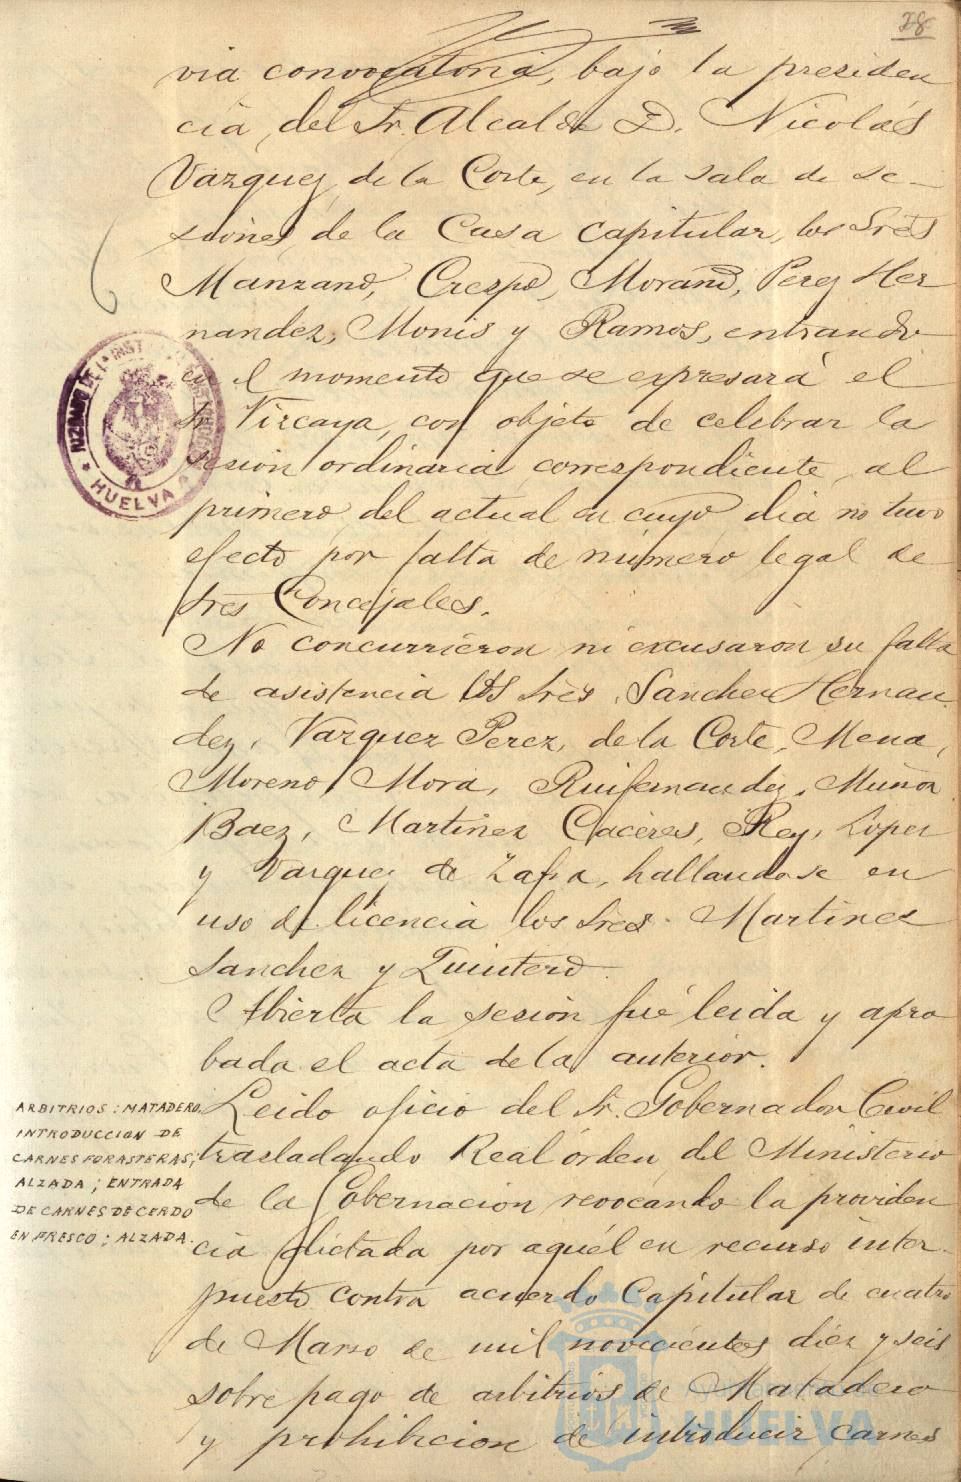 28
via convocatoria, bajo la presiden
cia, del Sr. Alcalde D. Nicolás
Vazquez, de la Corte, en la sala de se-
siones, de la Casa capitular, los Sres
Manzano, Crespo, Morano, Perez Her
nandez, Monis y Ramos, entrando
en el momento que se expresará el
Sr. Vizcaya, con objeto de celebrar la
sesion ordinaria, correspondiente, al
primero, del actual en cuyo dia no tuvo
efecto por falta de número legal de
Sres Concejales.
No concurrieron ni excusaron su falta
de asistencia los Sres. Sanchez Hernan
dez, Vazquez Perez, de la Corte, Mena,
Moreno, Mora, Ruifernandez, Muñoz
Baez, Martinez Caceres, Rey, Lopez
y Vazquez de Zafra, hallandose en
uso de licencia los Sres. Martinez
Sanchez y Quintero.
Abierta la sesion fué leida y apro
bada el acta de la anterior.
ARBITRIOS: MATADERO,
INTRODUCCION DE
CARNES FORASTERAS;
ALZADA; ENTRADA
DE CARNES DE CERDO
EN FRESCO; ALZADA.
Leido oficio del Sr. Gobernador Civil
trasladando Real órden, del Ministerio
de la Gobernacion revocando la providen
cia dictada por aquél en recurso inter-
puesto contra acuerdo Capitular de cuatro
de Marzo de mil novecientos diez y seis
sobre pago de arbitrios de Matadero
y prohibicion de introducir carnes
JUZGADO DE 1ª INST
HUELVA
Ayuntamiento de
HUELVA